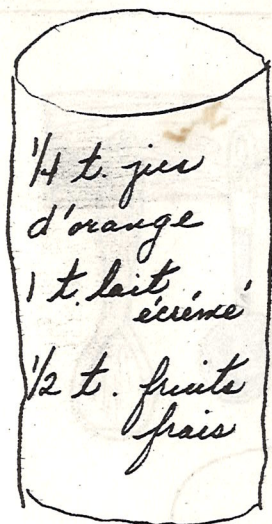 1/4 t. jus
d'orange
1 t. lait
écrémé
1/2 t. fruits
frais